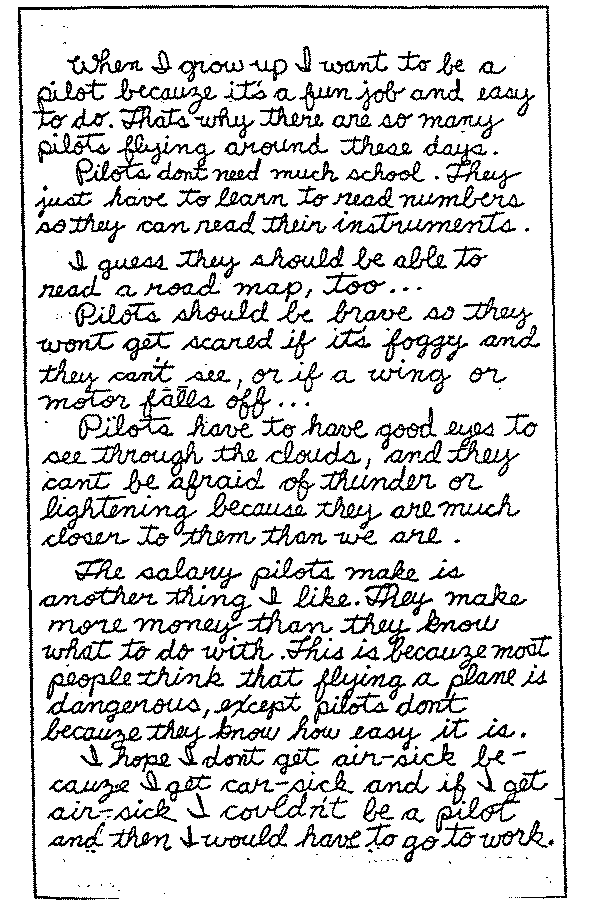 When I grow up I want to be a
pilot becauze it's a fun job and easy
to do. Thats why there are so many
pilots flying around these days.
Pilots dont need much school. They
just have to learn to read numbers
so they can read their instruments.
I guess they should be able to
read a road map, too...
Pilots should be brave so they
wont get scared if it's foggy and
they can't see, or if a wing or
motor falls off...
Pilots have to have good eyes to
see through the clouds, and they
cant be afraid of thunder or
lightening because they are much
closer to them than we are.
The salary pilots make is
another thing I like. They make
more money than they know
what to do with. This is becauze most
people think that flying a plane is
dangerous, except pilots dont
becauze they know how easy it is.
I hope I dont get air-sick be-
cauze I get car-sick and if I get
air-sick I couldn't be a pilot
and then I would have to go to work.